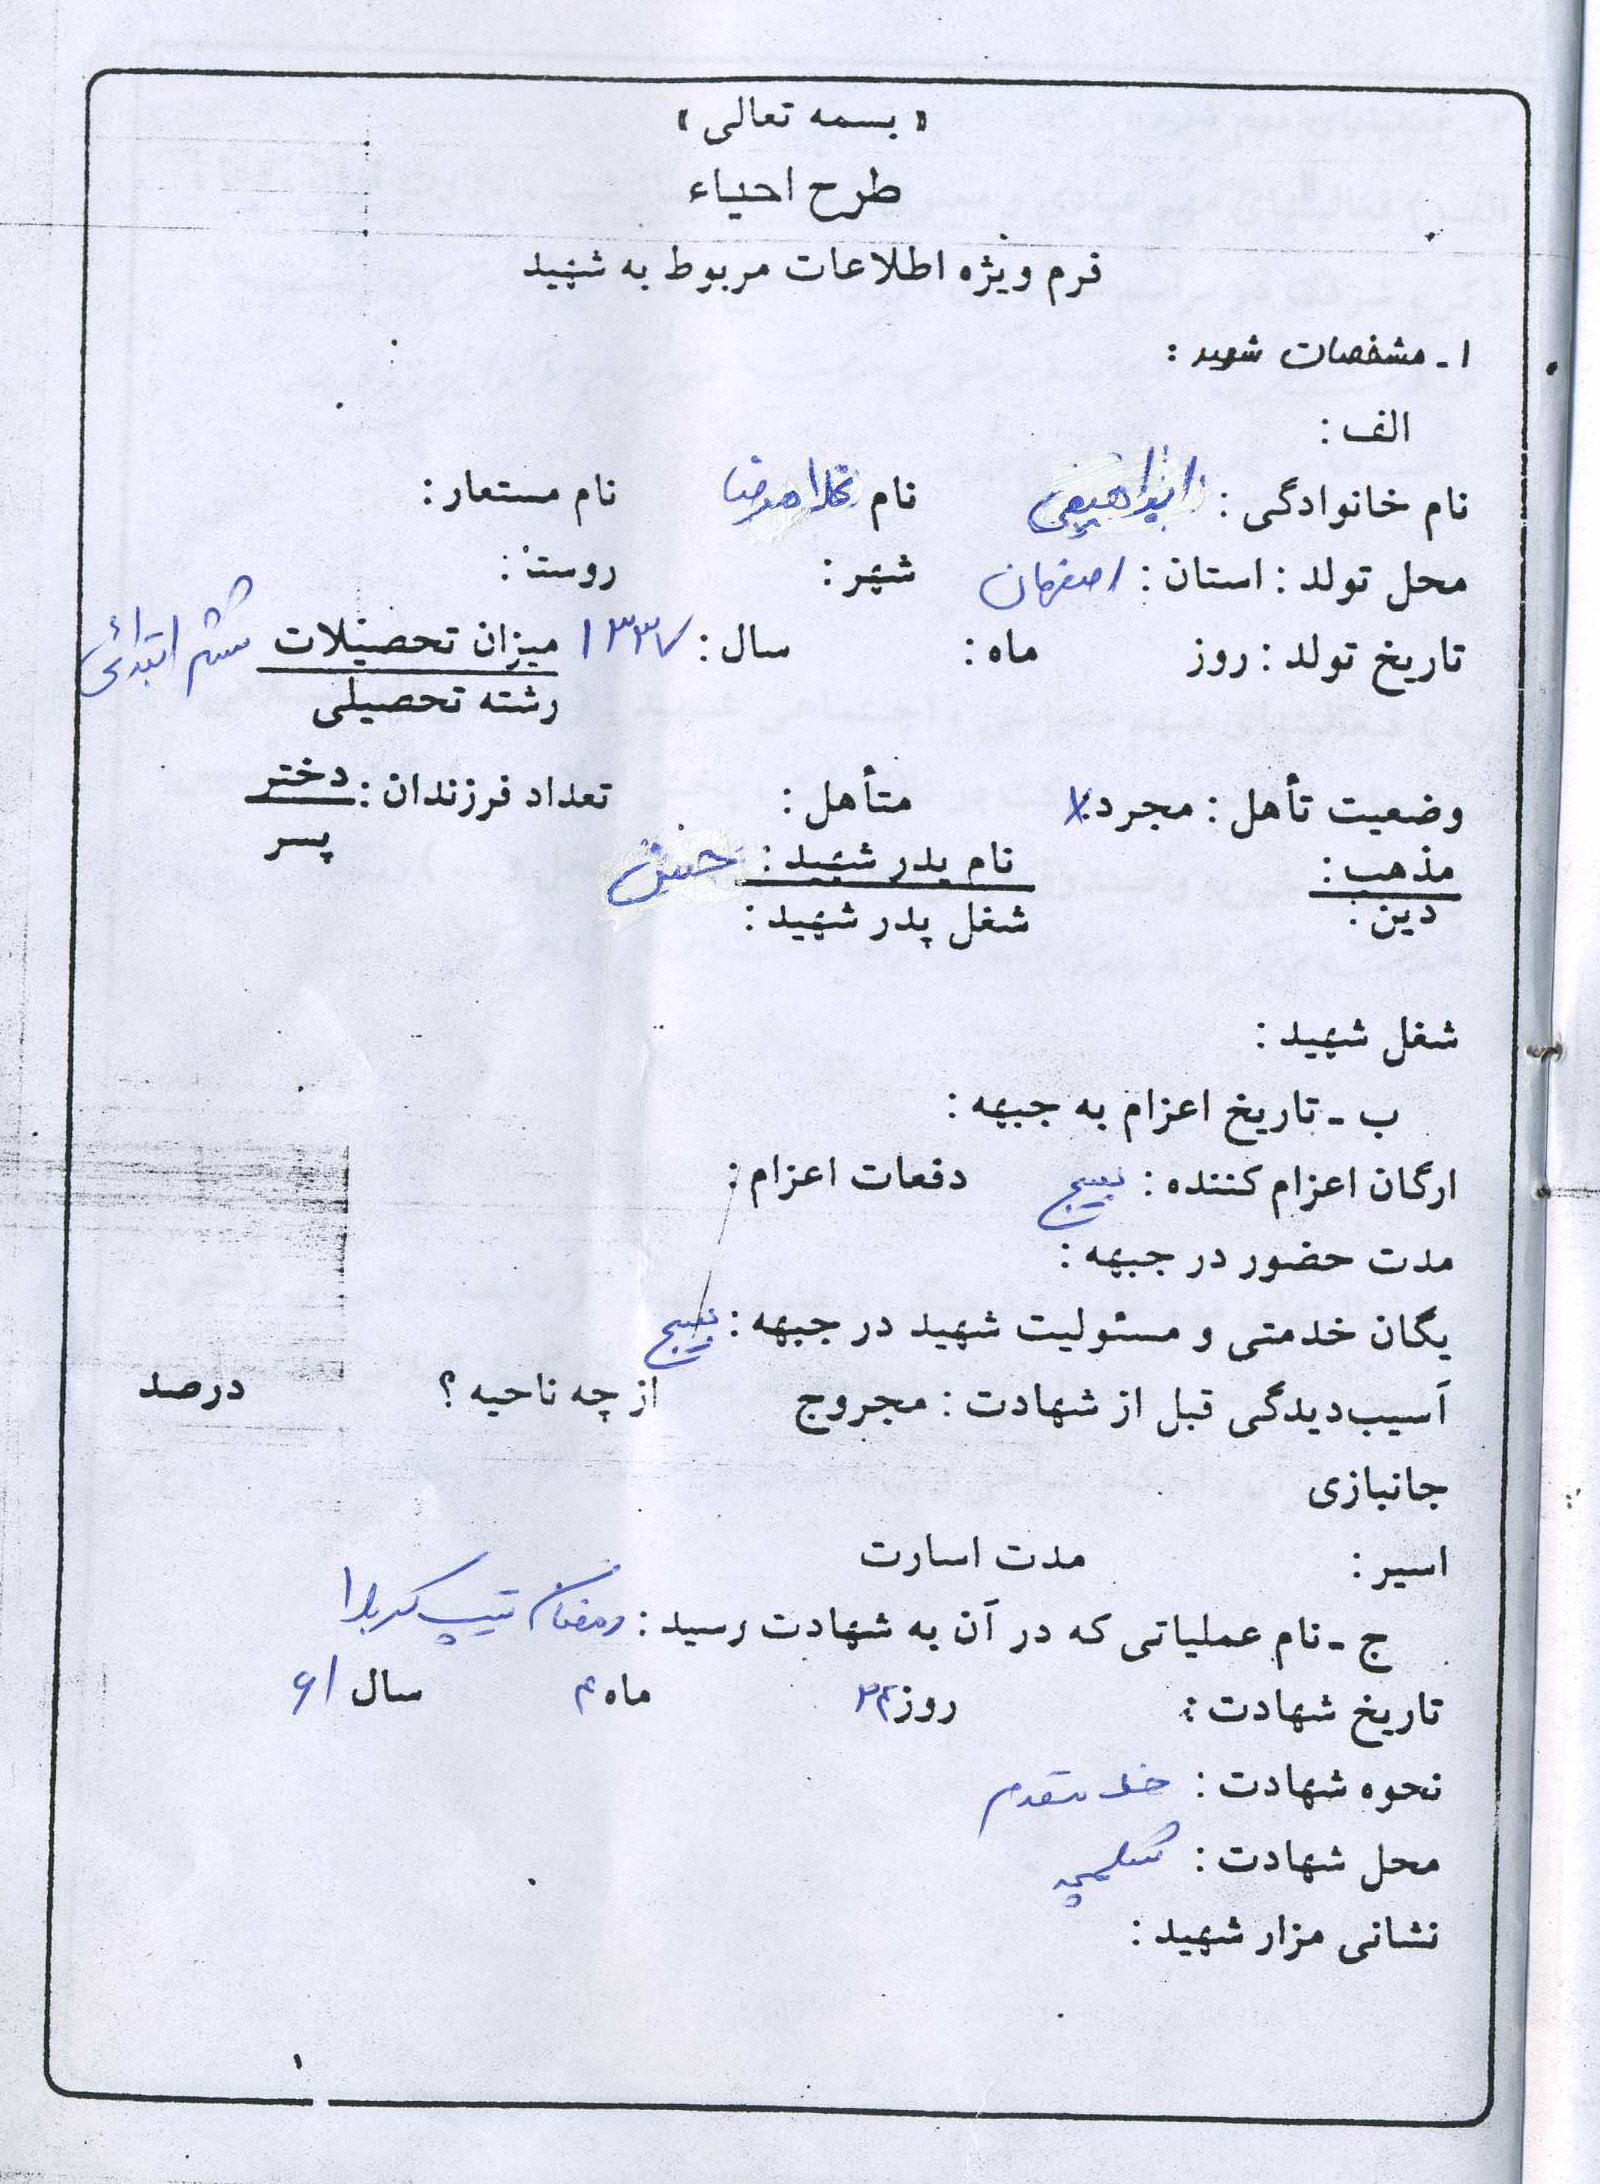 « بسمه تعالی »
طرح احیاء
فرم ویژه اطلاعات مربوط به شهید
۱ ـ مشخصات شهید :
الف :
نام خانوادگی : ابراهیمی نام غلامرضا نام مستعار :
محل تولد : استان : اصفهان شهر : روستا :
تاریخ تولد : روز ماه : سال : ۱۳۳۷ میزان تحصیلات ششم ابتدائی
رشته تحصیلی
وضعیت تأهل : مجرد : x متأهل : تعداد فرزندان : دختر
پسر
مذهب : نام پدر شهید : حسن
دین : شغل پدر شهید :
شغل شهید :
ب ـ تاریخ اعزام به جبهه :
ارگان اعزام کننده : بسیج دفعات اعزام :
مدت حضور در جبهه :
یگان خدمتی و مسئولیت شهید در جبهه : بسیج
آسیب‌دیدگی قبل از شهادت : مجروح از چه ناحیه ؟ درصد
جانبازی
اسیر : مدت اسارت
ج ـ نام عملیاتی که در آن به شهادت رسید : رمضان تیپ کربلا
تاریخ شهادت : روز ۲۴ ماه ۴ سال ۶۱
نحوه شهادت : خط مقدم
محل شهادت : شلمچه
نشانی مزار شهید :
۱